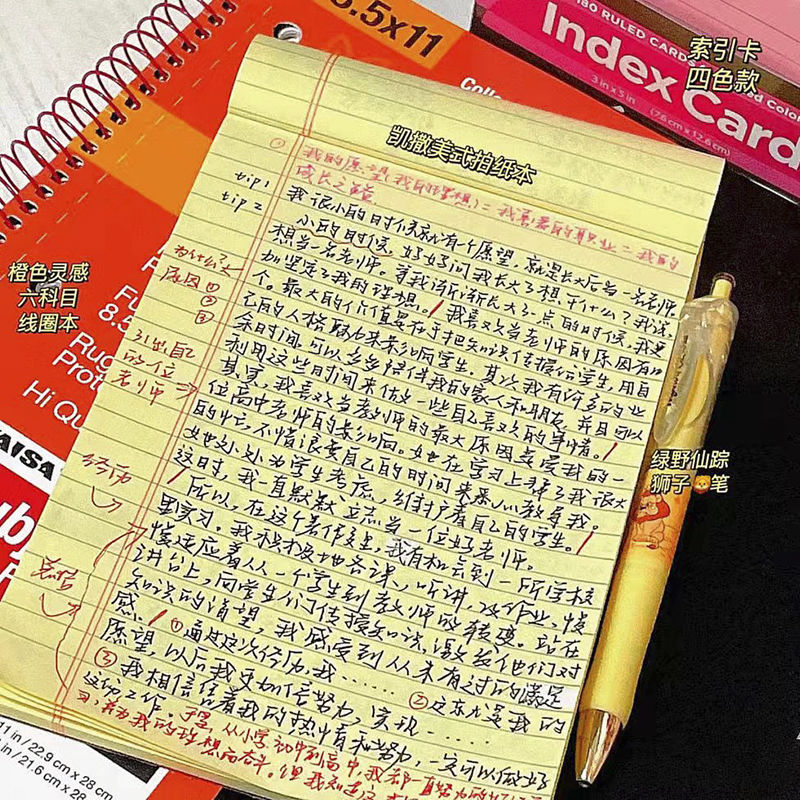 8.5x11
180 RULED CARDS
Index Card
3 in x 5 in
(7.6 cm x 12.6 cm)
索引卡
四色款
凯撒美式拍纸本
橙色灵感
六科目
线圈本
绿野仙踪
狮子🦁笔
① 我的愿望(我的理想)=我喜爱的职业=我的
成长之路
tip 1
tip 2
我很小的时候就有一个愿望,就是长大后当一名老师
小的时候,妈妈问我长大了想干什么?我说,
想当一名老师。等我渐渐长大了一点的时候,我更
加坚定了我的理想。/我喜欢当老师的原因有四
个。最大的价值是在于把知识传授给学生,用自
己的人格魅力来影响学生。其次我有许多的业
余时间,可以去陪伴我的家人和朋友,并且可以
利用这些时间来做一些自己喜欢的事情。/
其实,我喜欢当老师的最大原因是受我的一
位高中老师的影响。她在学习上给了我很大
的帮忙,不惜浪费自己的时间来耐心教导我。
她处处为学生考虑,维护着自己的学生。/
这时,我一直默默立志当一位好老师。
所以,在这暑假里,我有机会到一所学校
里实习。我积极地备课、听讲、改作业,慢
慢适应着从一个学生到老师的转变。站在
讲台上,向学生们传授知识,激发他们对
知识的渴望,我感受到从未有过的满足
感。/①通过这次经历,我…… ②这就是我的
愿望,以后我更加倍努力,实现……
③我相信凭着我的热情和努力,一定可以做好
这份工作。
为什么?
原因①
②
③
引出自己
的一位
老师
经历
总结
于是,从小学、初中到高中,我都一直努力
为我的理想而奋斗。但我知道这
Hi Qu
11 in / 22.9 cm x 28 cm
in / 21.6 cm x 28